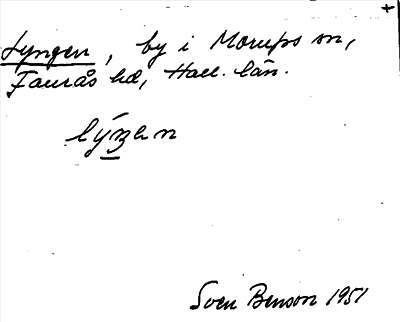 +
Lyngen, by i Morups sn,
Faurås hd, Hall. län.
Sven Benson 1951